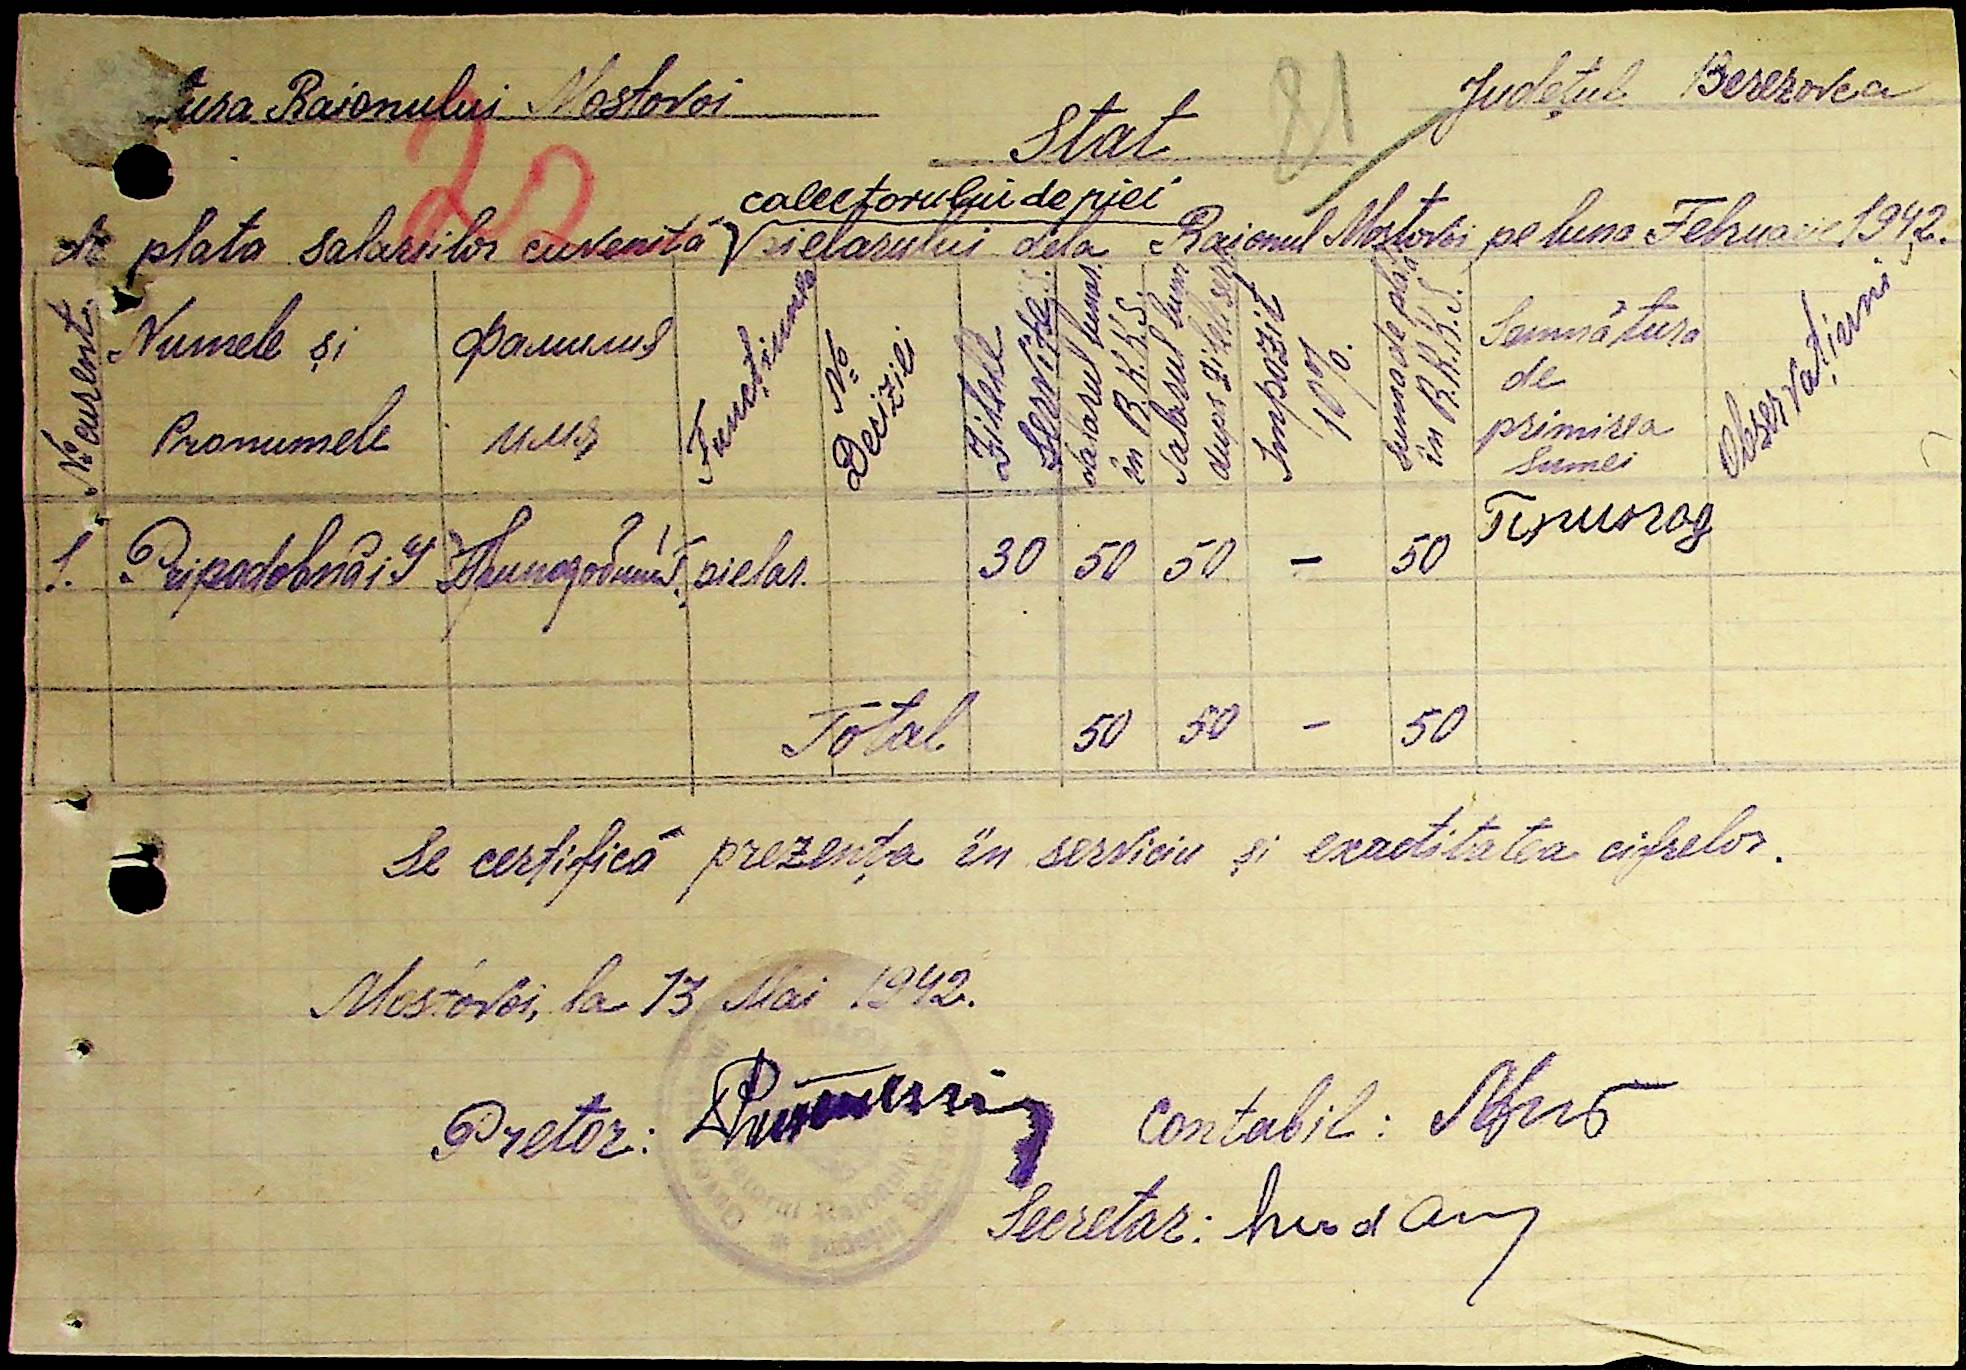 tura Raionului Mostovoi
Județul Berezovca
81
Stat
20
calectorului de piei
de plata salariilor cuvenită V pielarului dela Raionul Mostovoi pe luna Februarie 1942.
№ curent
Numele și Pronumele
Фамилия имя
Funcțiunea
№ Decizii
Zilele Servite
Salarul lunar în R.K.K.S.
Salarul lunar după zilele serv.
Impozit 10%.
Suma de plată în R.K.K.S.
Semnătura de primirea Sumei
Observațiuni
1. Pripadobnâi pielar. 30 50 50 – 50
Total 50 50 – 50
Se certifică prezența în serviciu și exactitatea cifrelor.
Mostovoi, la 13 Mai 1942.
Pretor:
Contabil:
Secretar: